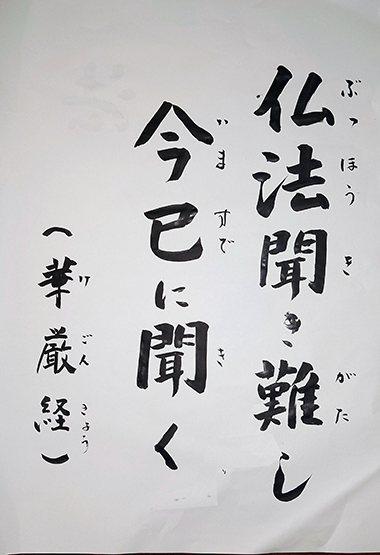 仏法聞き難し
ぶっほう き がた
今已に聞く
いますで き
（華厳経）
け ごん きょう